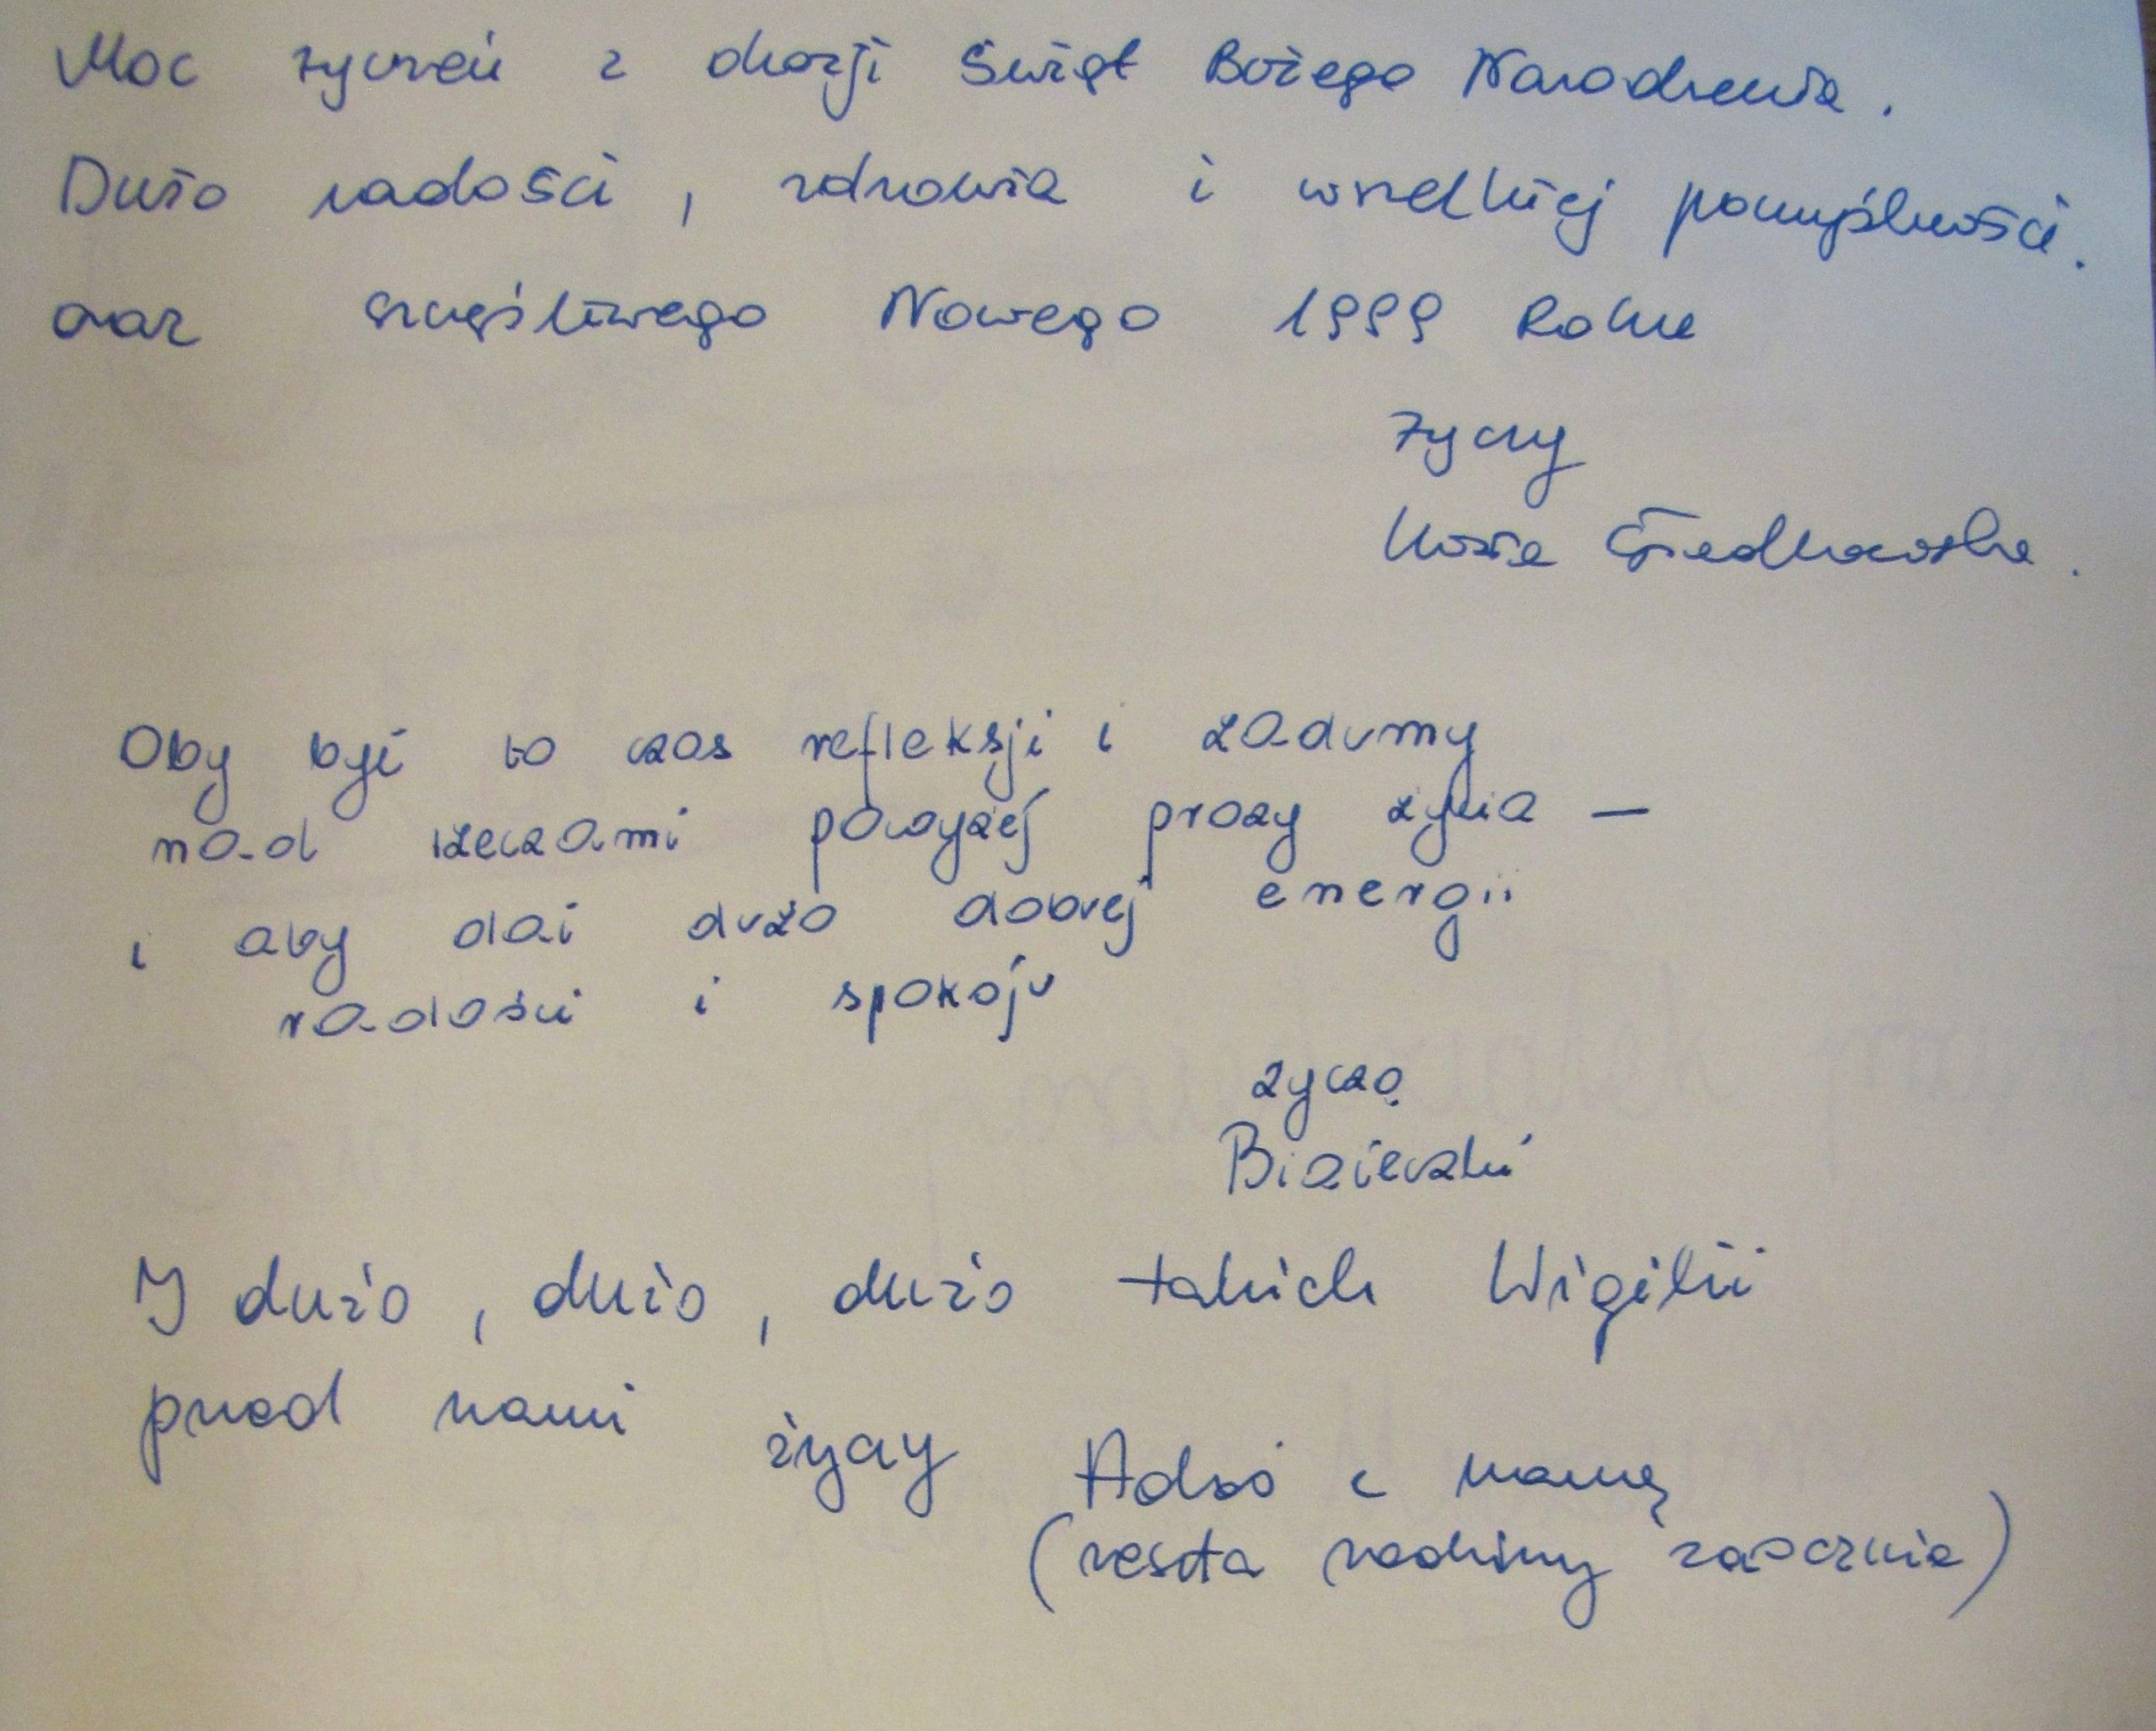 Moc życzeń z okazji Świąt Bożego Narodzenia.
Dużo radości, zdrowia i wszelkiej pomyślności.
oraz szczęśliwego Nowego 1999 Roku
życzy
Oby był to czas refleksji i zadumy
nad rzeczami powyżej prozy życia —
i aby dał dużo dobrej energii
radości i spokoju
życzą
I dużo, dużo, dużo takich Wigilii
przed nami życzy Adaś z mamą
(reszta rodziny zaocznie)